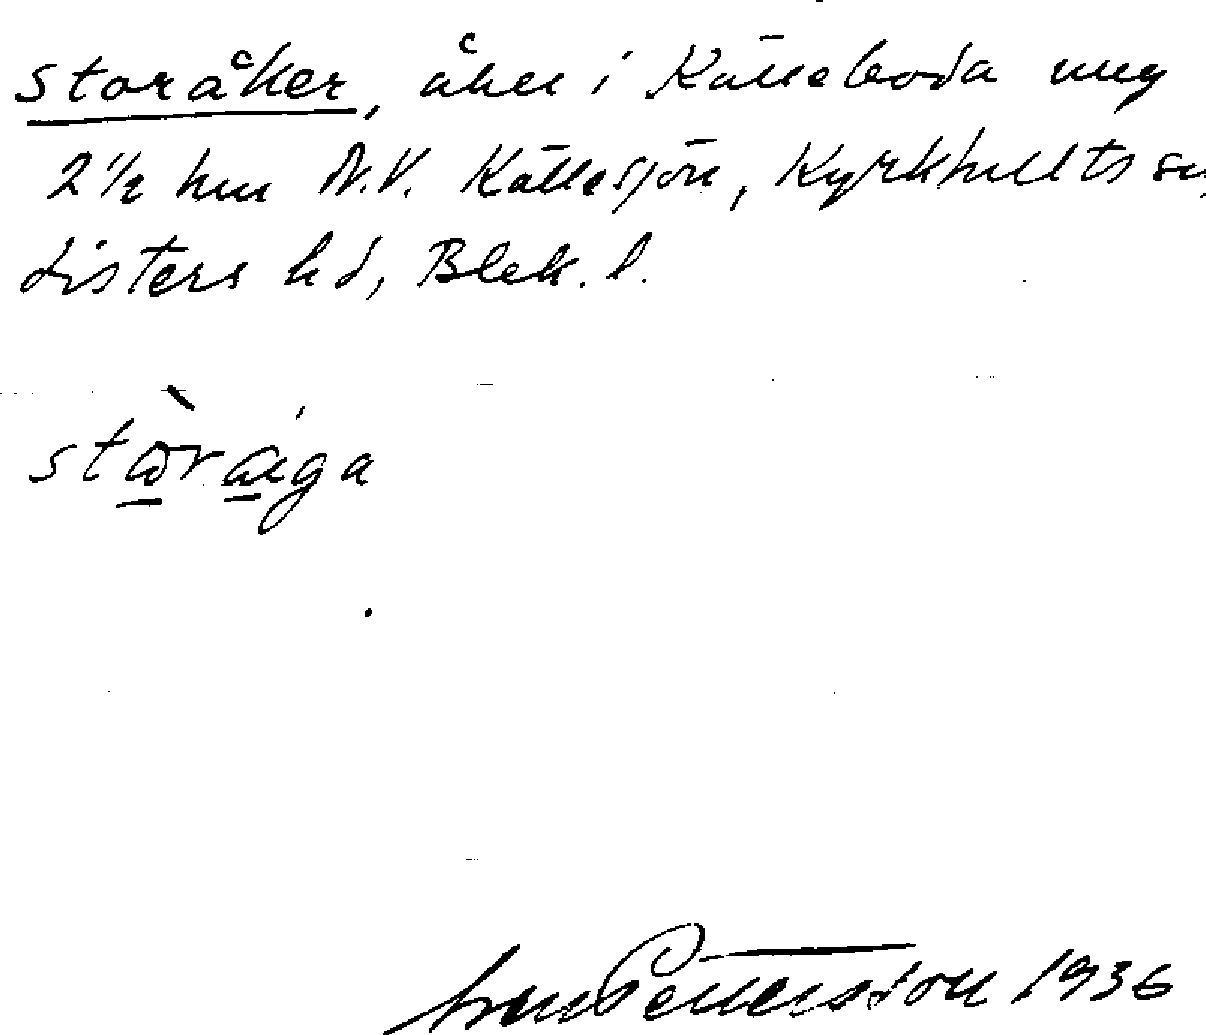 Storåker, åker i Källeboda umg
2 1/2 km N.V. Källesjön, Kyrkhults sn,
Listers hd, Blek. l.
stòráiga
Pettersson 1936